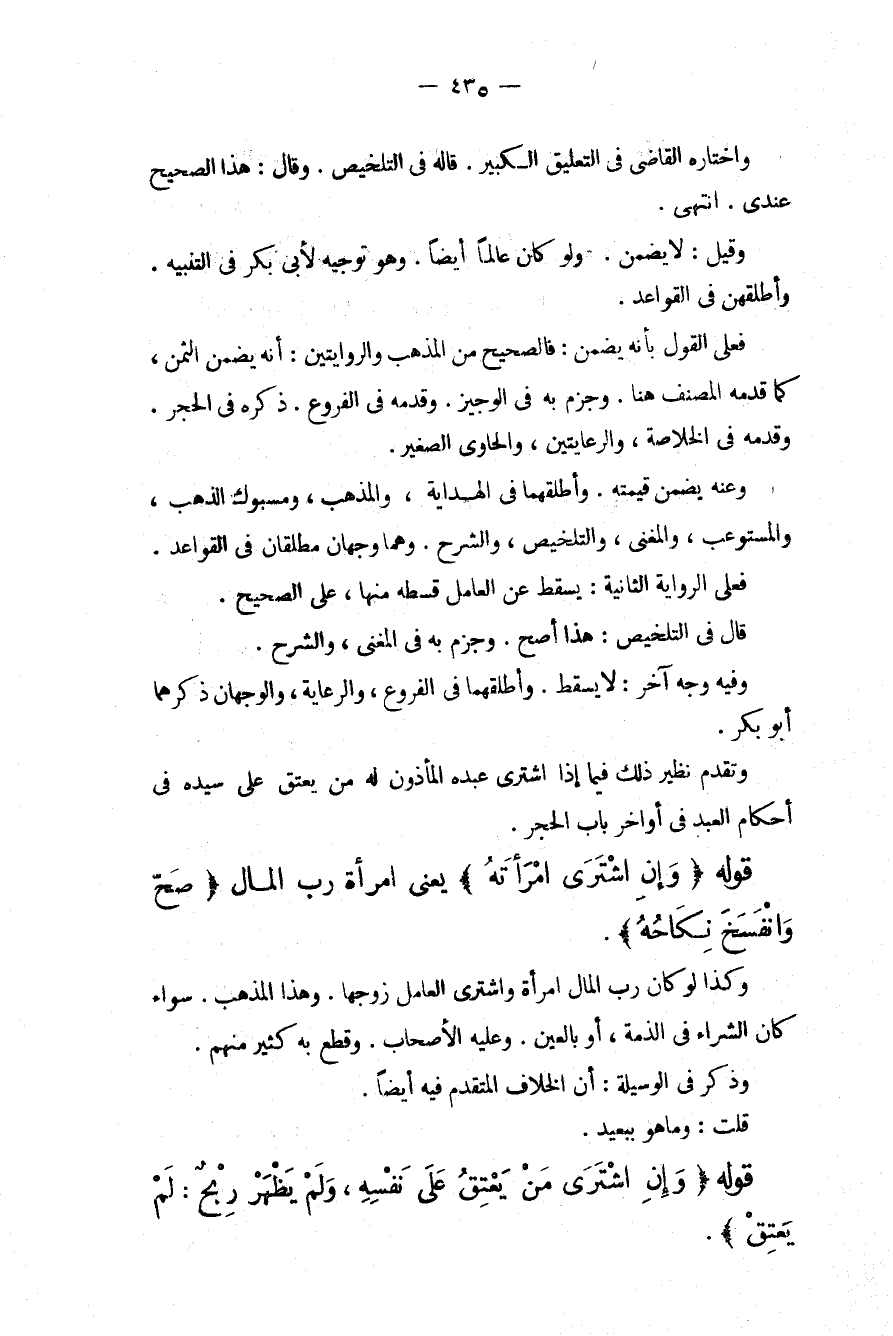 — ٤٣٥ —
واختاره القاضى فى التعليق الكبير . قاله فى التلخيص . وقال : هذا الصحيح
عندى . انتهى .
وقيل : لا يضمن . ولو كان عالماً أيضاً . وهو توجيه لأبى بكر فى التنبيه .
وأطلقهن فى القواعد .
فعلى القول بأنه يضمن : فالصحيح من المذهب والروايتين : أنه يضمن الثمن ،
كما قدمه المصنف هنا . وجزم به فى الوجيز . وقدمه فى الفروع . ذكره فى الحجر .
وقدمه فى الخلاصة ، والرعايتين ، والحاوى الصغير .
وعنه يضمن قيمته . وأطلقهما فى الهداية ، والمذهب ، ومسبوك الذهب ،
والمستوعب ، والمغنى ، والتلخيص ، والشرح . وهما وجهان مطلقان فى القواعد .
فعلى الرواية الثانية : يسقط عن العامل قسطه منها ، على الصحيح .
قال فى التلخيص : هذا أصح . وجزم به فى المغنى ، والشرح .
وفيه وجه آخر : لا يسقط . وأطلقهما فى الفروع ، والرعاية ، والوجهان ذكرهما
أبو بكر .
وتقدم نظير ذلك فيما إذا اشترى عبده المأذون له من يعتق على سيده فى
أحكام العبد فى أواخر باب الحجر .
قوله ﴿ وَإِنِ اشْتَرَى امْرَأَتَهُ ﴾ يعنى امرأة رب المال ﴿ صَحّ
وَانْفَسَخَ نِكَاحُهُ ﴾ .
وكذا لو كان رب المال امرأة واشترى العامل زوجها . وهذا المذهب . سواء
كان الشراء فى الذمة ، أو بالعين . وعليه الأصحاب . وقطع به كثير منهم .
وذكر فى الوسيلة : أن الخلاف المتقدم فيه أيضاً .
قلت : وماهو ببعيد .
قوله ﴿ وَإِنِ اشْتَرَى مَنْ يَعْتِقُ عَلَى نَفْسِهِ ، وَلَمْ يَظْهَرْ رِبْحٌ : لَمْ
يَعتِقْ ﴾ .